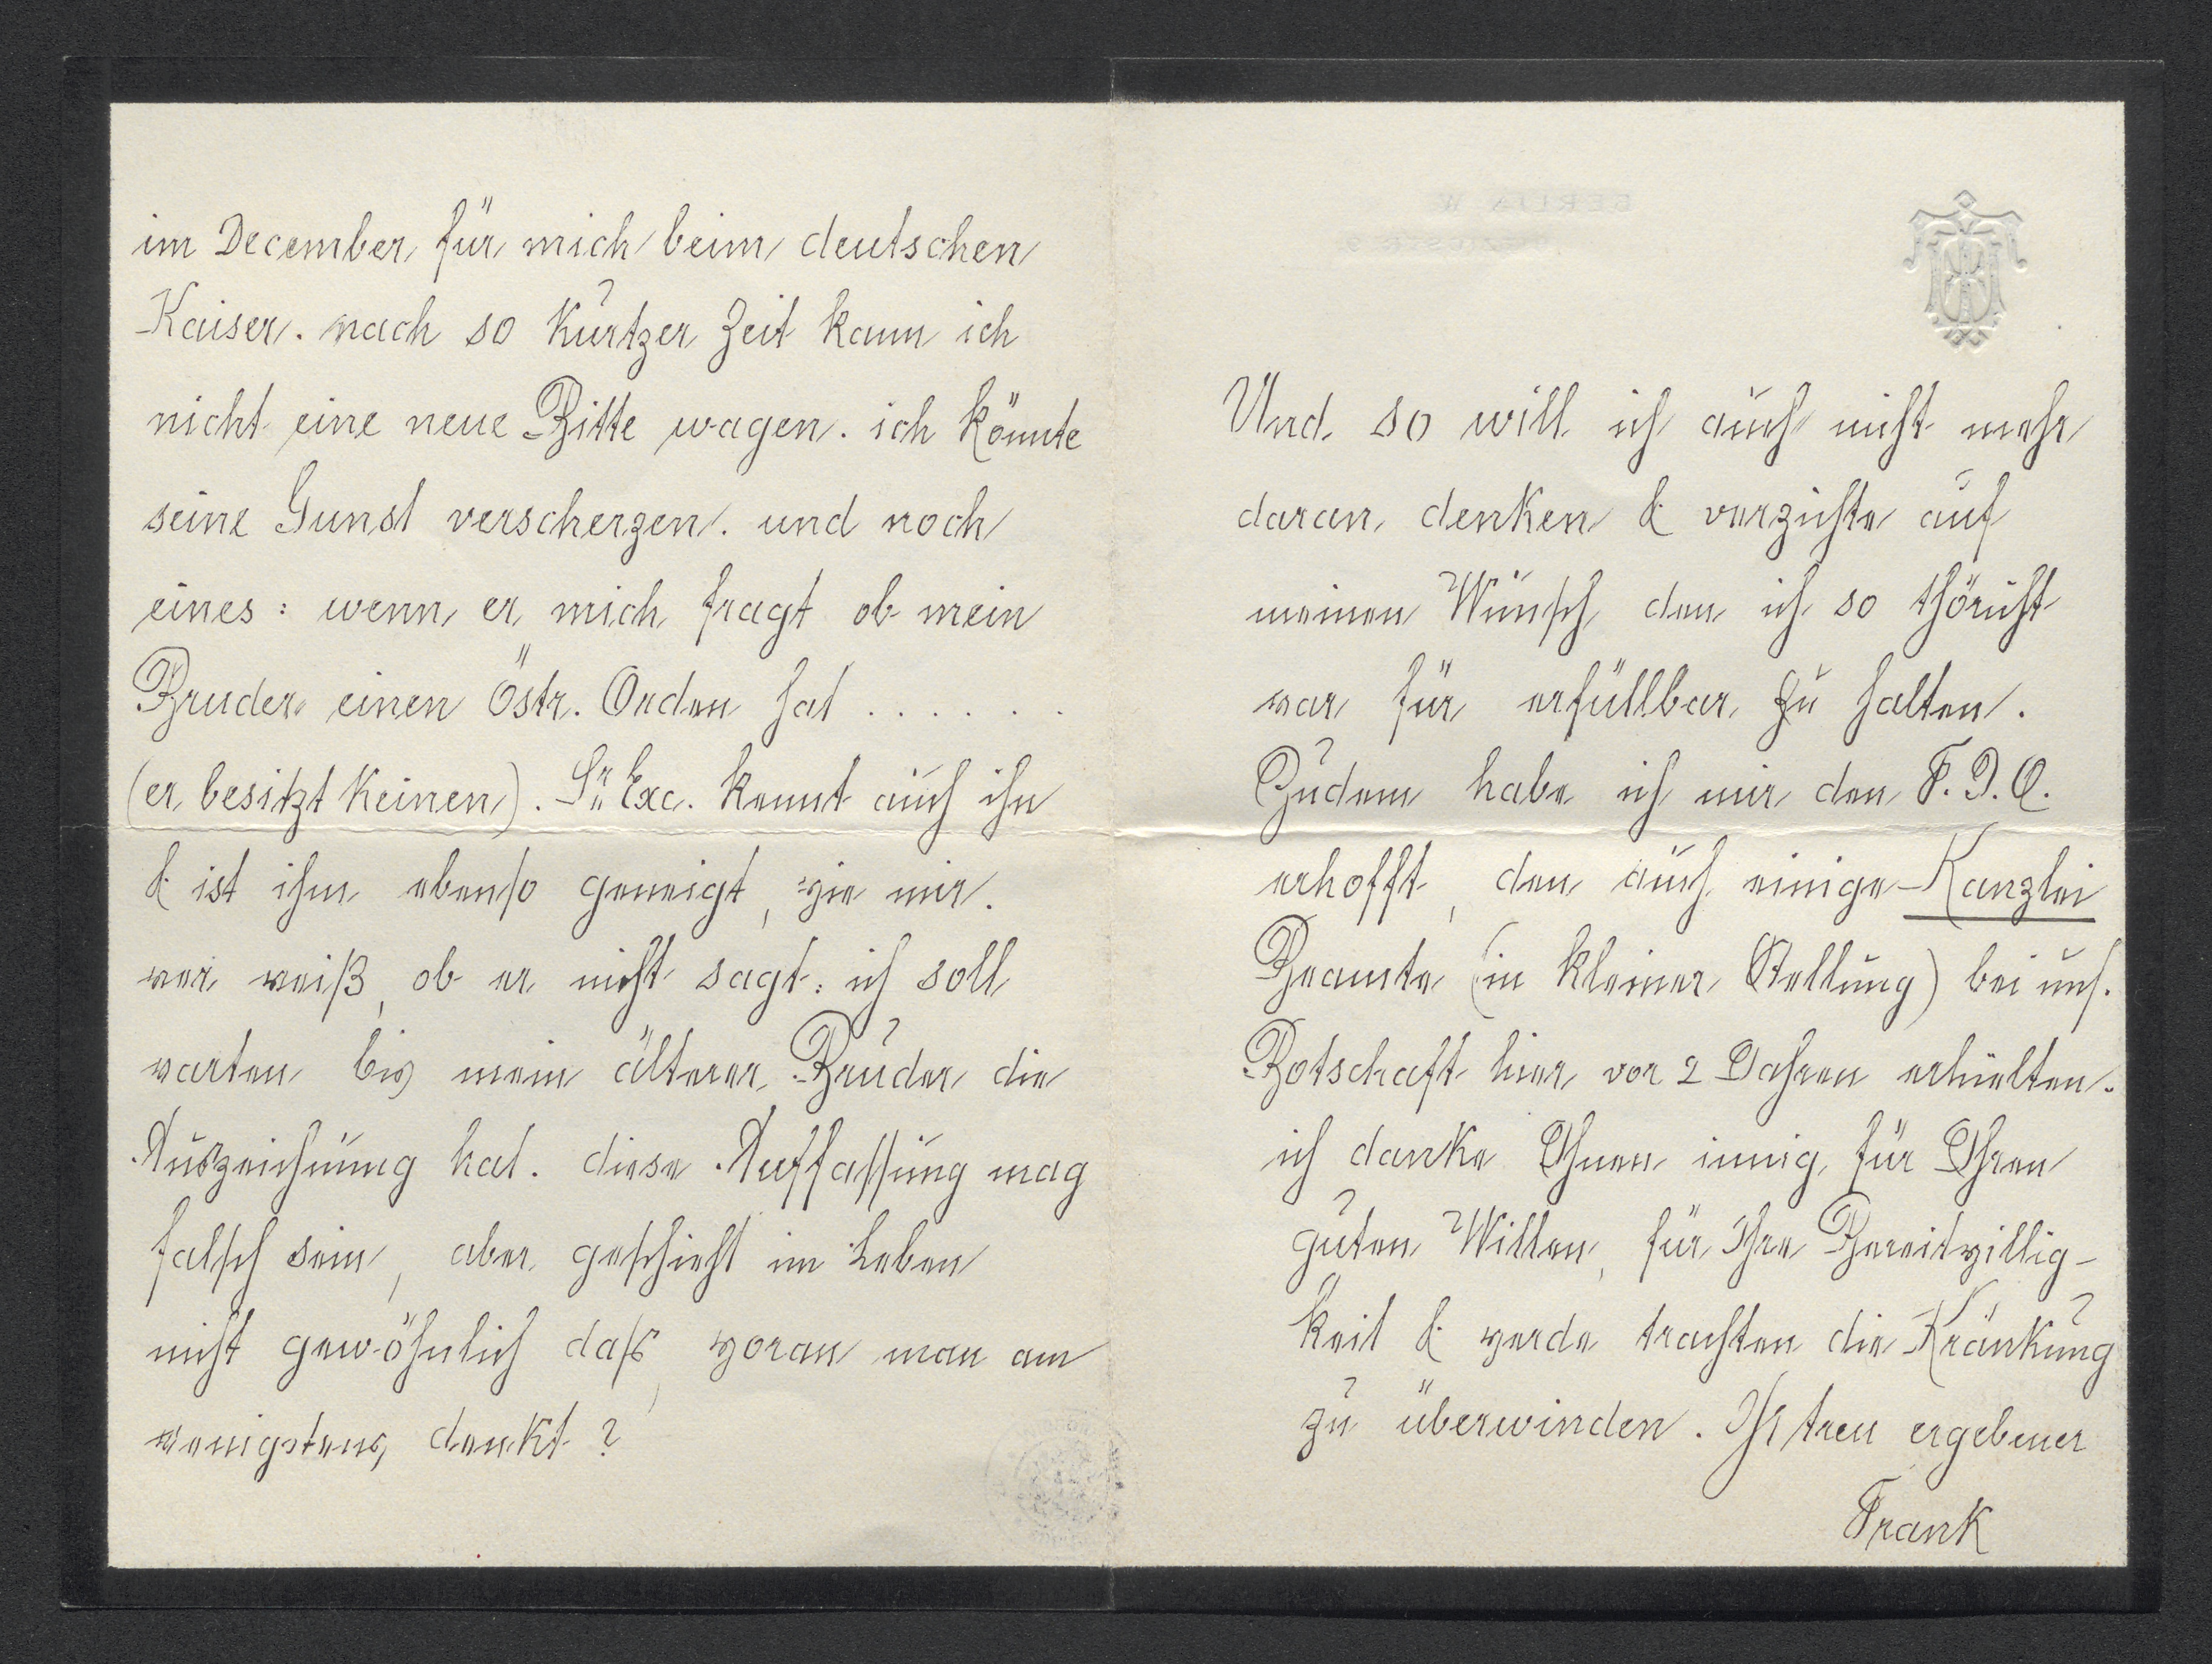 im December für mich beim deutschen
Kaiser. nach so kurtzer Zeit kann ich
nicht eine neue Bitte wagen. ich könnte
seine Gunst verscherzen. und noch
eines: wenn er mich fragt ob mein
Bruder einen östr. Orden hat . . . . . .
(er besitzt keinen). Sr. Exc. kennt auch ihn
& ist ihm ebenso geneigt, wie mir.
wer weiß, ob er nicht sagt: ich soll
warten bis mein älterer Bruder die
Auszeichnung hat. diese Auffassung mag
falsch sein, aber geschieht im Leben
nicht gewöhnlich daß, woran man am
wenigstens denkt?
Und so will ich auch nicht mehr
daran denken & verzichte auf
meinen Wunsch, den ich so thöricht
war für erfüllbar zu halten.
Zudem habe ich mir den F. J. O.
erhofft, den auch einige Kanzlei
Beamte (in kleiner Stellung) bei uns.
Botschaft hier vor 2 Jahren erhielten.
ich danke Ihnen innig für Ihren
guten Willen, für Ihre Bereitwillig-
keit & werde trachten die Kränkung
zu überwinden. Ihr treu ergebener
Frank